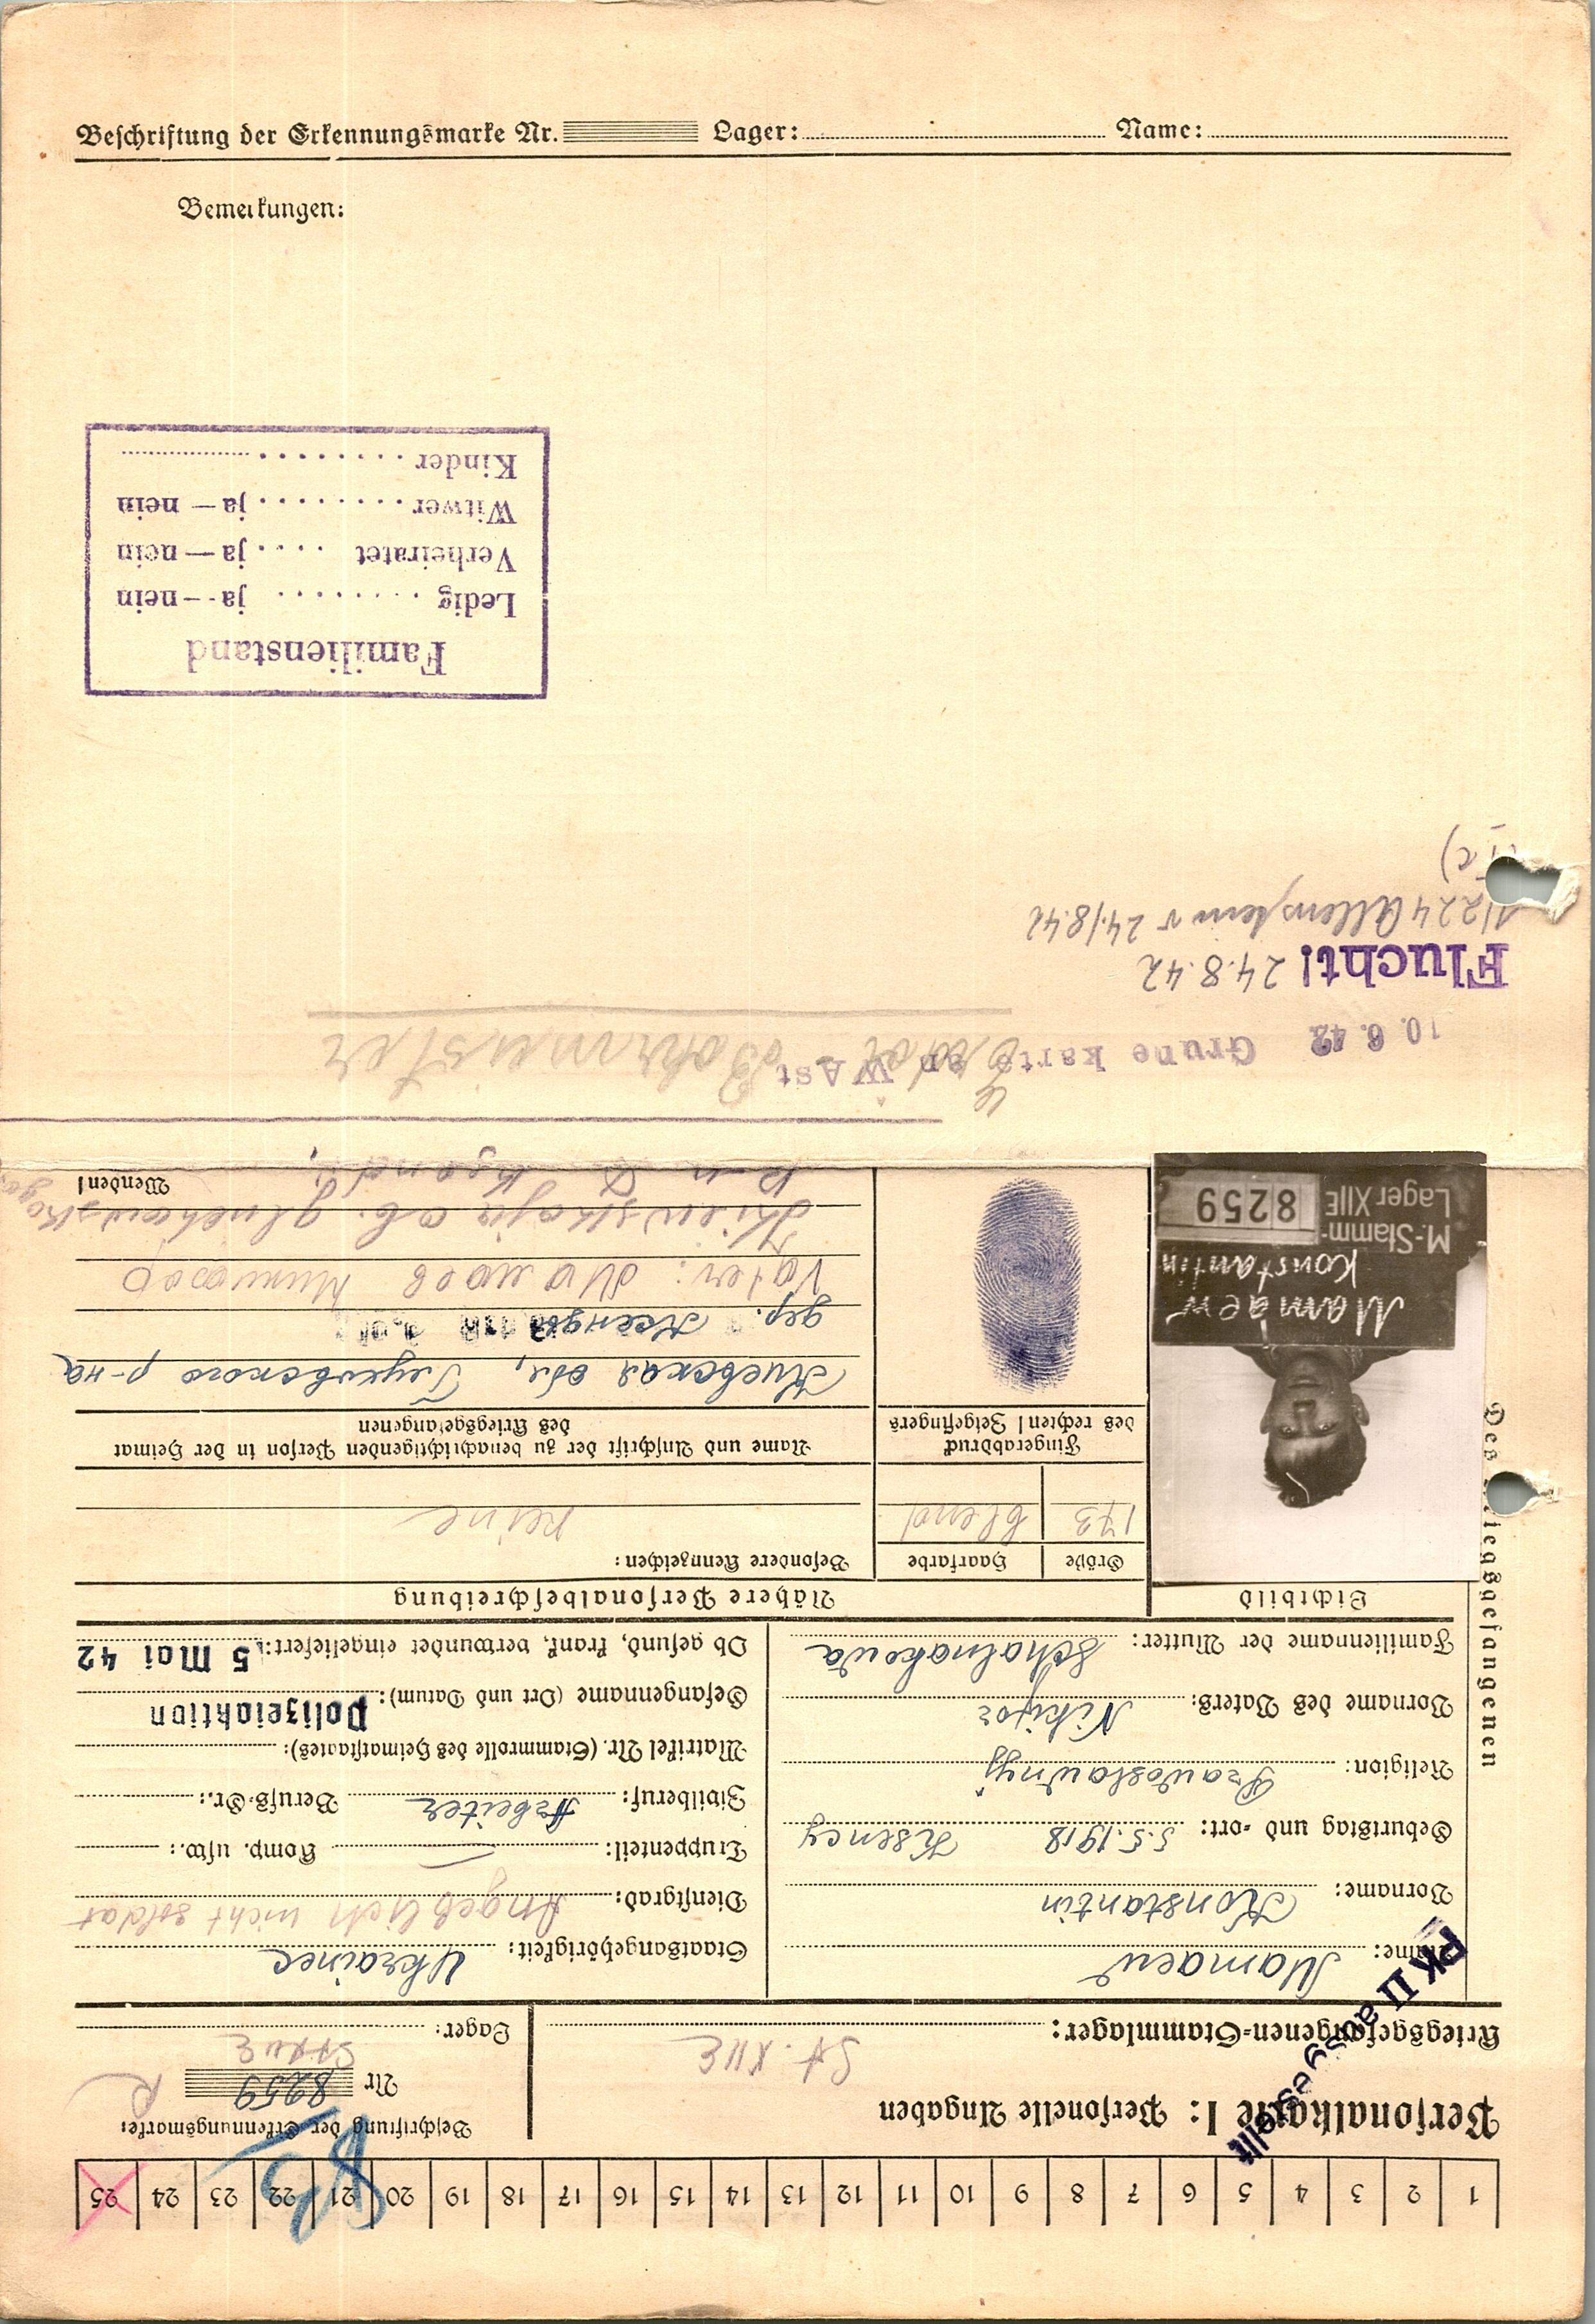 1 2 3 4 5 6 7 8 9 10 11 12 13 14 15 16 17 18 19 20 21 22 23 24 25
Personalkarte I: Personelle Angaben
Beschriftung der Erkennungsmarke:
Nr 8259
Kriegsgefangenen-Stammlager: St. XIIE
Lager: St XIIE
PK II ausgestellt
Des Kriegsgefangenen
Name: Mamaew
Staatsangehörigkeit: Ukrainer
Vorname: Konstantin
Dienstgrad: Angeblich nicht soldat
Geburtstag und -ort: 5.5.1918 Ksency
Truppenteil: — Komp. usw.:
Religion: Prawoslawnyj
Zivilberuf: Arbeiter Berufs-Gr.:
Vorname des Vaters: Nikifor
Matrikel Nr. (Stammrolle des Heimatstaates):
Familienname der Mutter: Scholnakowa
Gefangenname (Ort und Datum): Polizeiaktion
Ob gesund, krank, verwundet eingeliefert: 5 Mai 42
Lichtbild
Nähere Personalbeschreibung
Größe
Haarfarbe
Besondere Kennzeichen:
173
blond
keine
Fingerabdruck
des rechten! Zeigefingers
Name und Anschrift der zu benachrichtigenden Person in der Heimat
des Kriegsgefangenen
Киевская обл., Глуховского р-на
дер.
Vater: Мамаев
Kiewskaja ob.
Mamaew
Konstantin
M-Stamm-
Lager XIIE
8259
Wenden!
10. 6. 42 Grune karte an WASt
Bohrmeister
Flucht! 24.8.42
Allenstein v 24/8.42
Familienstand
Ledig ........ ja – nein
Verheiratet .... ja – nein
Witwer ......... ja – nein
Kinder ........
Bemerkungen:
Beschriftung der Erkennungsmarke Nr. Lager: Name: